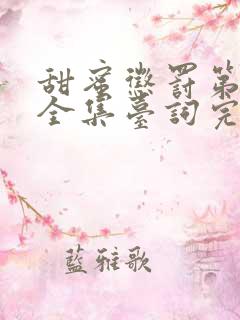 甜蜜懲罰第
全集臺詞完
藍雅歌